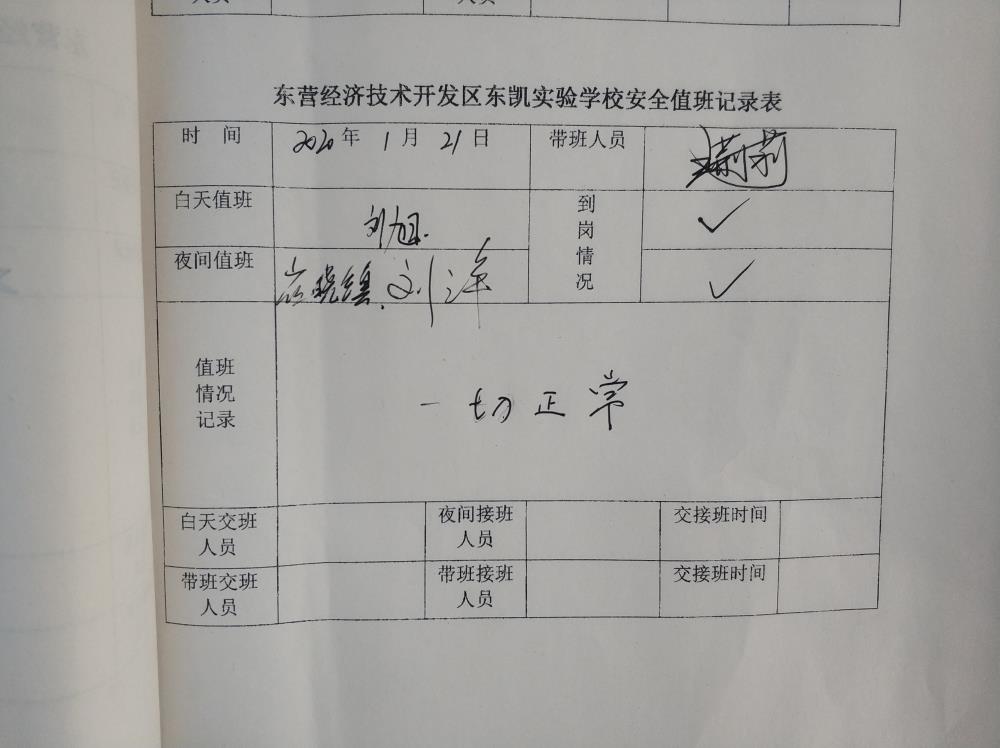 人员
人员
东营经济技术开发区东凯实验学校安全值班记录表
时 间 2020年 1月 21日 带班人员
白天值班 刘旭. 到岗情况 ✓
夜间值班 刘洋 ✓
值班情况记录 一切正常
白天交班人员 夜间接班人员 交接班时间
带班交班人员 带班接班人员 交接班时间